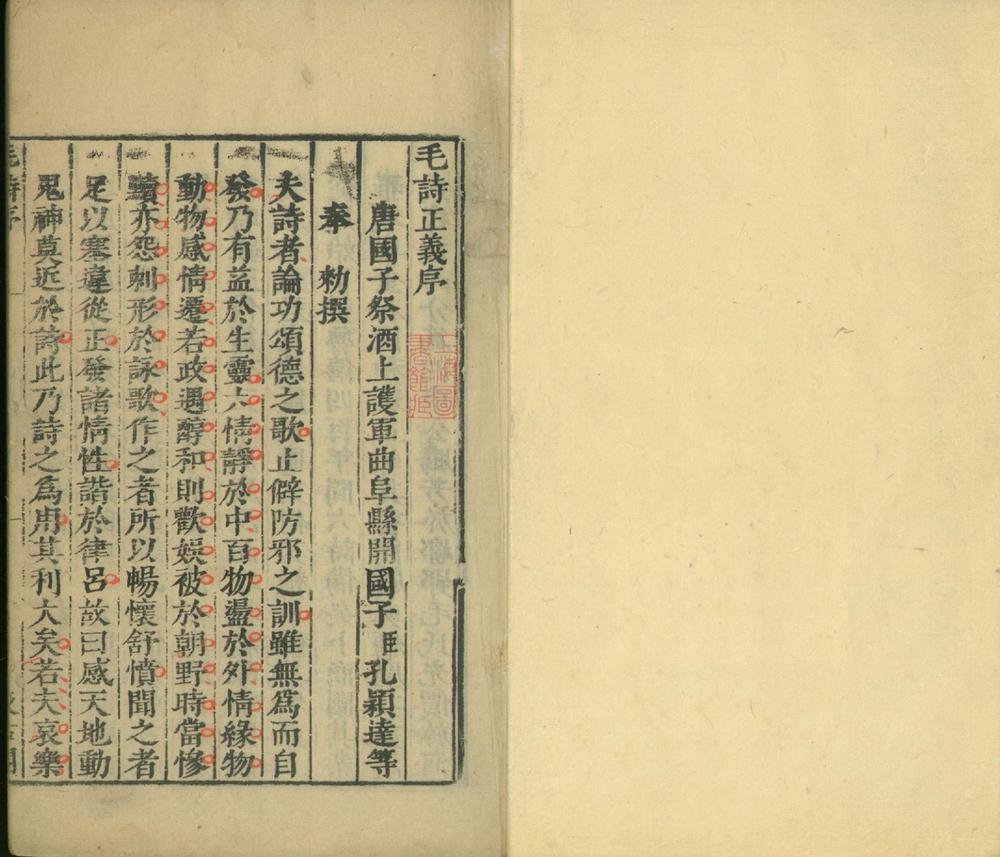 毛詩正義序
唐國子祭酒上護軍曲阜縣開國子臣孔穎達等
奉 勅撰
夫詩者論功頌德之歌止僻防邪之訓雖無爲而自
發乃有益於生靈六情靜於中百物盪於外情緣物
動物感情遷若政遇醇和則歡娛被於朝野時當慘
黷亦怨刺形於詠歌作之者所以暢懷舒憤聞之者
足以塞違從正發諸情性諧於律呂故曰感天地動
鬼神莫近於詩此乃詩之爲用其利大矣若夫哀樂
毛詩序